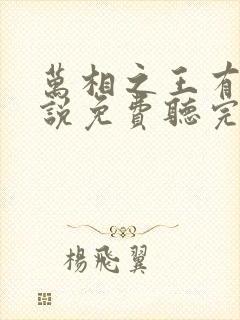 萬相之王有
說免費聽完
楊飛翼